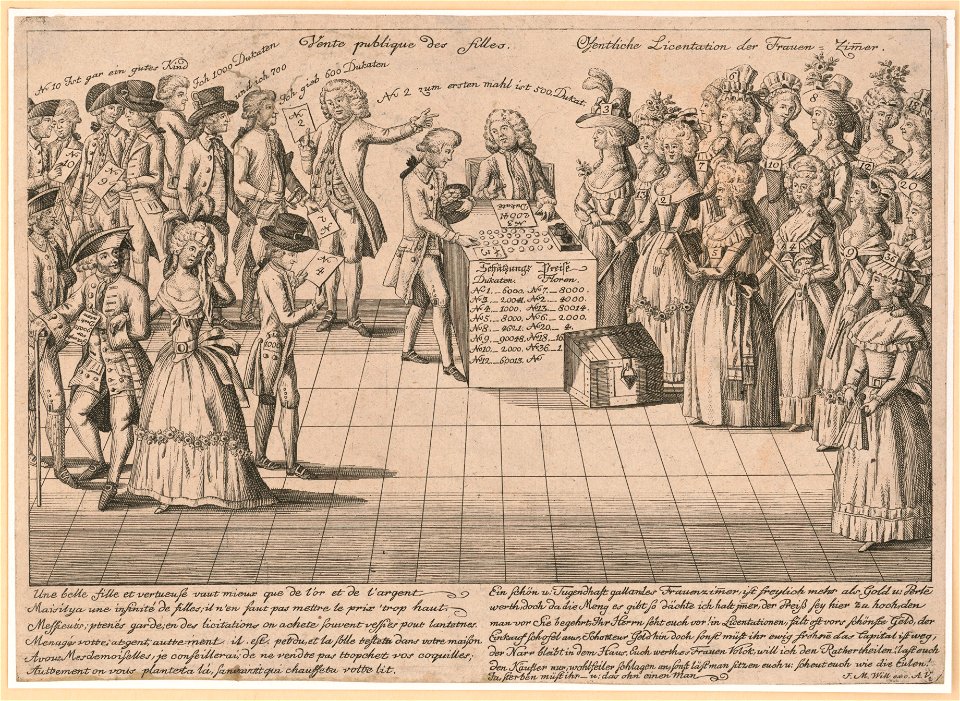 Vente publique des filles.
Ofentliche Licentation der Frauen = Zimer.
No 10 Ist gar ein gutes Kind
Ich 1000 Dukaten
und ich 700
Ich gieb 600 Dukaten
No 2 zum ersten mahl ist 500 Dukat.
No 10
No 9
No 2
No 2
No 4
1000
Dukaté
20041
No 3
Schätzungs Preise
Dukaten. Floren.
No 1. _ 6000. No 7. _ 8000.
No 3. _ 20041. No 2. _ 4000.
No 4. _ 1000. No 13. _ 80014.
No 5. _ 8000. No 6. _ 2000.
No 8. _ 4621. No 20. _ 4.
No 9. _ 90048. No 18. _ 16
No 10. _ 2000. No 36. _ 1
No 12. _ 60013. No
3
2
7
6
10
8
5
9
20
36
Une belle fille et vertueuse vaut mieux que de l'or et de l'argent.
Maisilya une infinité de filles; il n'en faut pas mettre le prix trop haut,
Messieurs, prenés garde; en des licitations on achete souvent vessies pour lanternes
Menagés votre argent, autrement il est perdu, et la folle restera dans votre maison
A vous Mesdemoiselles, je conseillerai, de ne vendre pas trop chet vos coquilles;
Autrement on vous plantera là, sans qui chauffera votre lit.
Ein schön u: Tugendhaft gallandes Frauenzimer, ist freylich mehr als Gold u: Perle
werth, doch da die Meng es gibt so dächte ich halt imer, der Preiß sey hier zu hoch, den
man vor Sie begehrt, Ihr Herrn seht euch vor! in Licentationen, fält oft vors schönste Geld, der
Einkauf schofel aus; Schont euer Geld hin doch sonst müst ihr ewig frohnen das Capital ist weg,
der Narr bleibt in dem Haus, Euch werthes Frauen Volck, will ich den Rath ertheilen: last euch
den Käufer nur, wohlfeiler schlagen an, sonst läst man sitzen euch u: scheut euch wie die Eulen!
Ja sterben müst ihr _ u: das ohn' einen Man
J. M. Will exc. A. V.